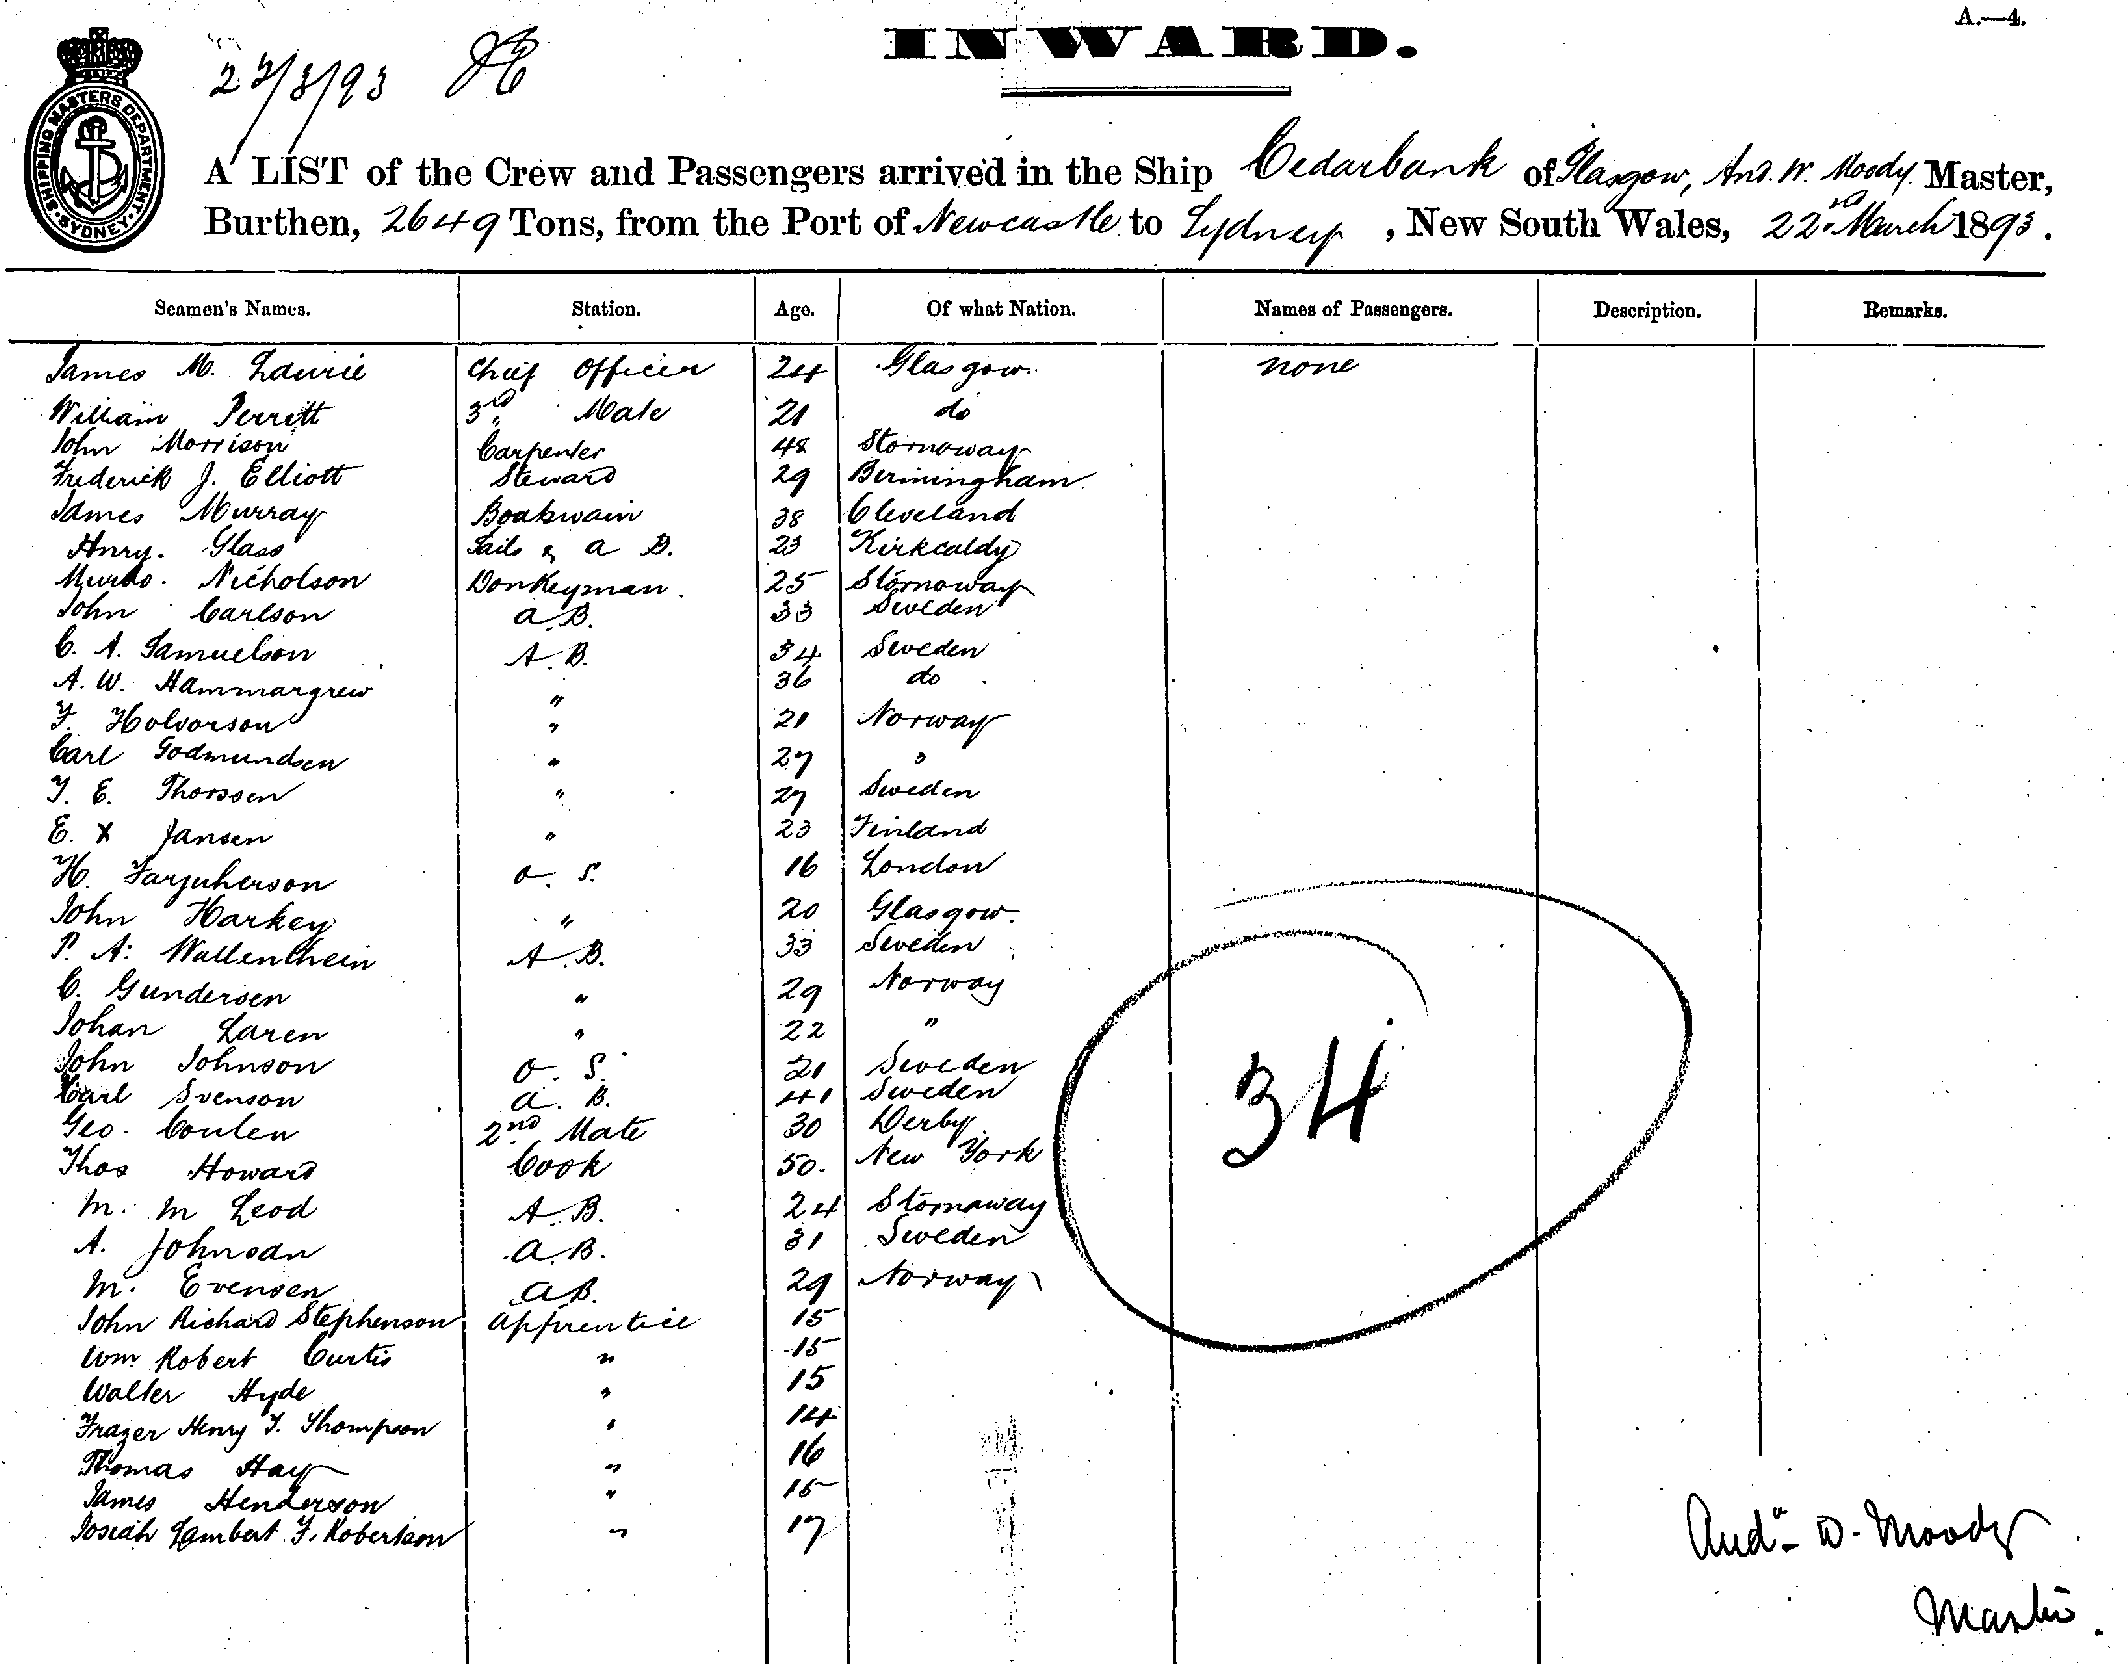 A.—4.
INWARD.
22/3/93
SHIPPING MASTERS DEPARTMENT SYDNEY
A LIST of the Crew and Passengers arrived in the Ship Cedarbank of Glasgow, And. W. Moody Master,
Burthen, 2649 Tons, from the Port of Newcastle to Sydney, New South Wales, 22nd March 1893.
Seamen's Names. Station. Age. Of what Nation. Names of Passengers. Description. Remarks.
James M. Laurie Chief Officer 24 Glasgow. none
William Perrett 3rd Mate 21 do
John Morrison Carpenter 48 Stornoway
Frederick J. Elliott Steward 29 Birmingham
James Murray Boatswain 38 Cleveland
Hnry. Glass Sails & A B. 23 Kirkcaldy
Murdo. Nicholson Donkeyman. 25 Stornoway
John Carlson a.B. 33 Sweden
C. A. Samuelson A.B. 34 Sweden
A. W. Hammargrew " 36 do
F. Holvorson " 21 Norway
Carl Godmundsen " 27 "
T. E. Thorssen " 27 Sweden
E. X Jansen " 23 Finland
H. Farquherson O. S. 16 London
John Harkey " 20 Glasgow.
P. A. Wallenthein A.B. 33 Sweden
C. Gundersen " 29 Norway
Johan Laren " 22 "
John Johnson O. S. 21 Sweden
Carl Svenson a. B. 41 Sweden
Geo. Coulen 2nd Mate 30 Derby
Thos Howard Cook 50. New York
M. M Leod A.B. 24 Stornaway
A. Johnson a.B. 31 Sweden
M. Evensen a B. 29 Norway
John Richard Stephenson Apprentice 15
Wm Robert Curtis " 15
Walter Hyde " 15
Frazer Henry T. Thompson " 14
Thomas Hay " 16
James Henderson " 15
Josiah Lambert F. Robertson " 17
34
Andw. W. Moody
Master.